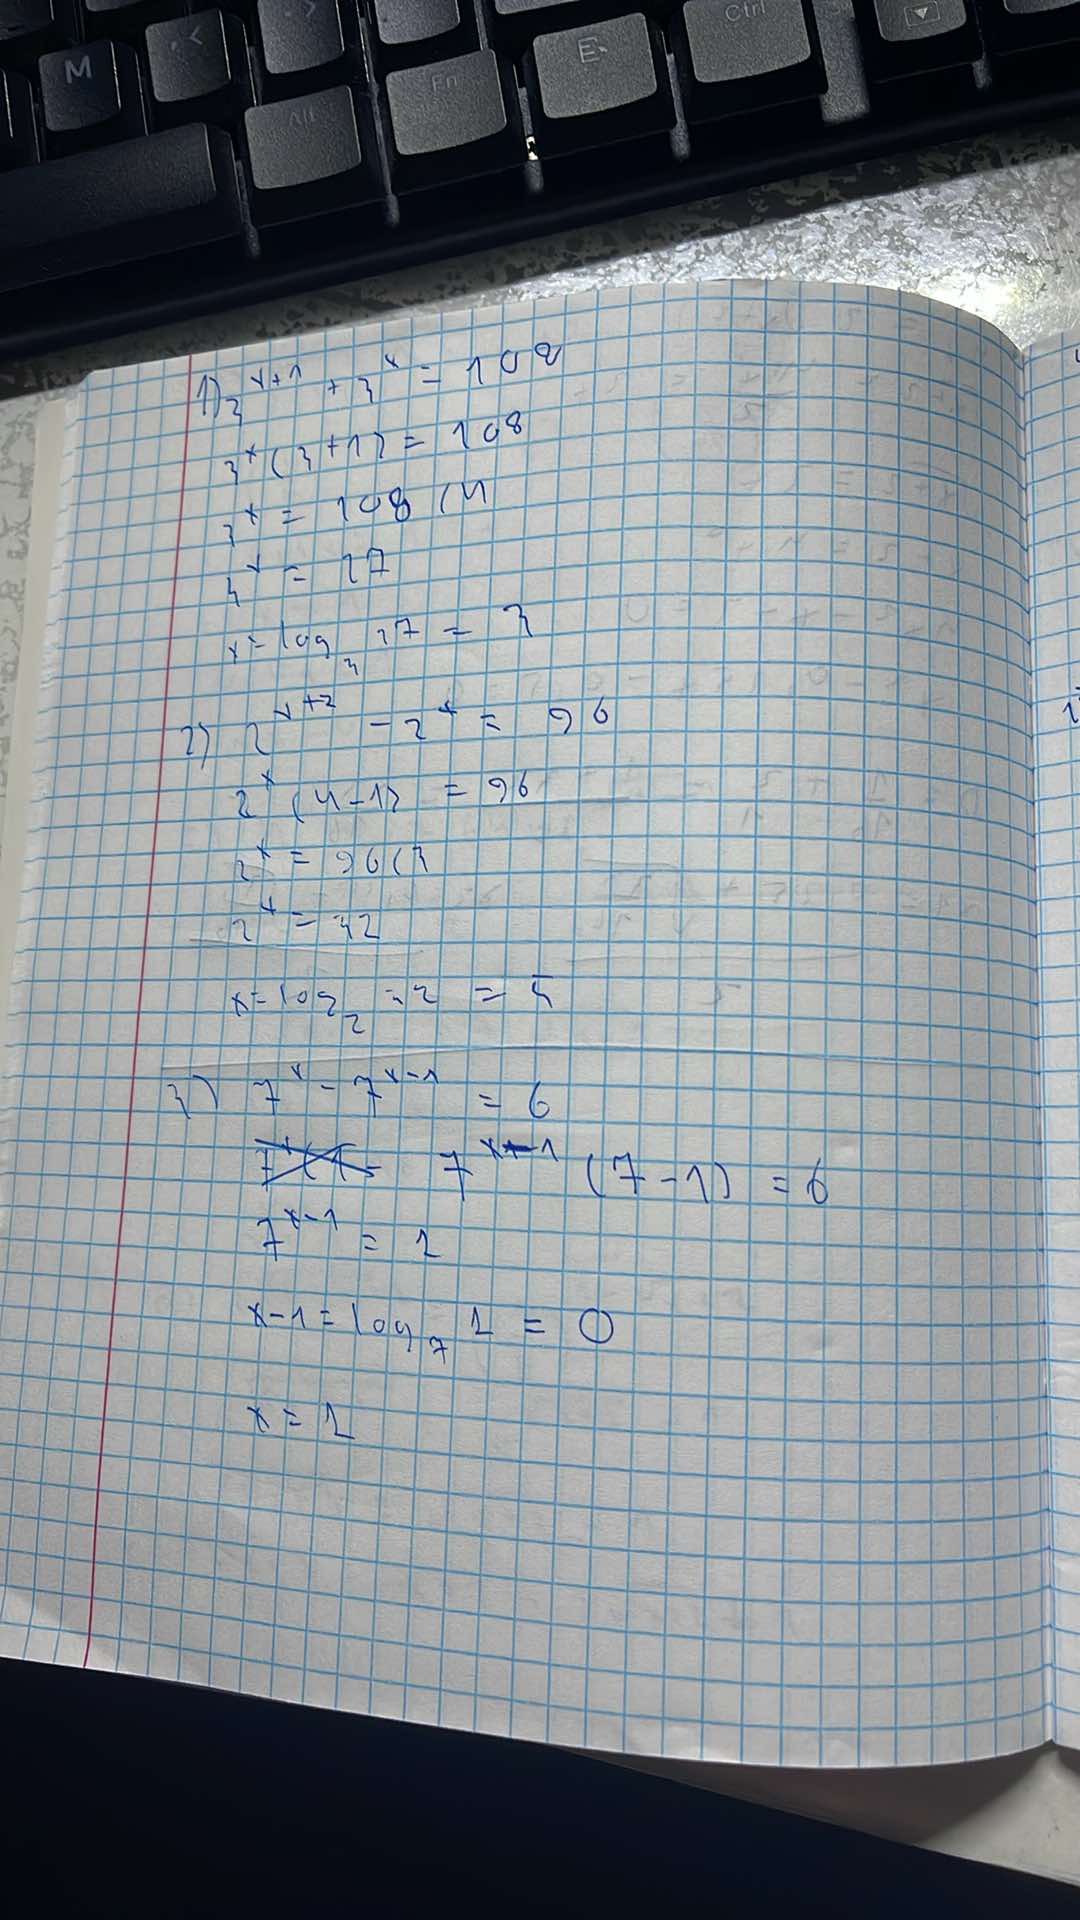 M
<
>
Alt
Fn
E
Ctrl
1) 3^{x+1} + 3^x = 108
3^x (3+1) = 108
3^x = 108 / 4
3^x = 27
x = log_3 27 = 3
2) 2^{x+2} - 2^x = 96
2^x (4-1) = 96
2^x = 96 / 3
2^x = 32
x = log_2 32 = 5
3) 7^x - 7^{x-1} = 6
7^{x-1} (7-1) = 6
7^{x-1} = 1
x-1 = log_7 1 = 0
x = 1